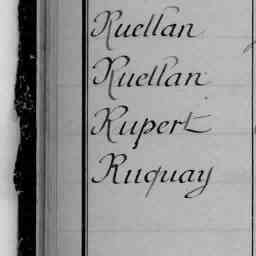 Ruellan
Ruellan
Rupert
Ruquay